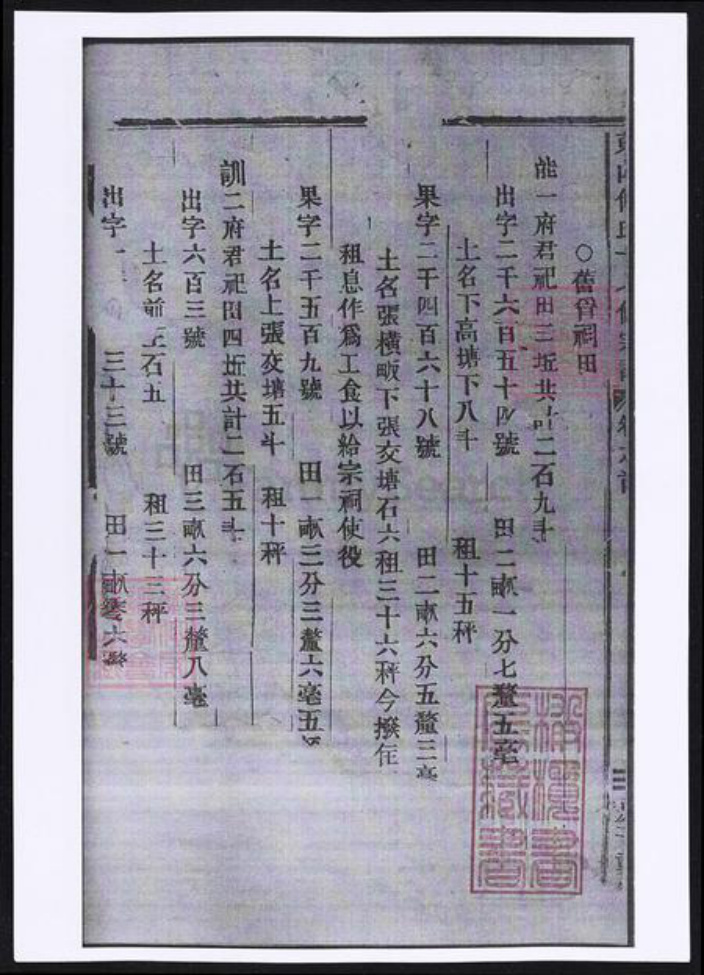 ○舊管祠田
能一府君祀田三坵共計二石九斗
出字二千六百五十四號 田二畝一分七釐五毫
土名下高塘下八斗 租十五秤
果字二千四百六十八號 田二畝六分五釐三毫
土名張橫畈下張交塘石六租三十六秤今撥在
租息作爲工食以給宗祠使役
果字二千五百九號 田一畝三分三釐六毫五
土名上張交塘五斗 租十秤
訓二府君祀田四坵共計二石五斗
出字六百三號 田三畝六分三釐八毫
土名前 石五 租三十三秤
出字 三十三號 田一畝零六